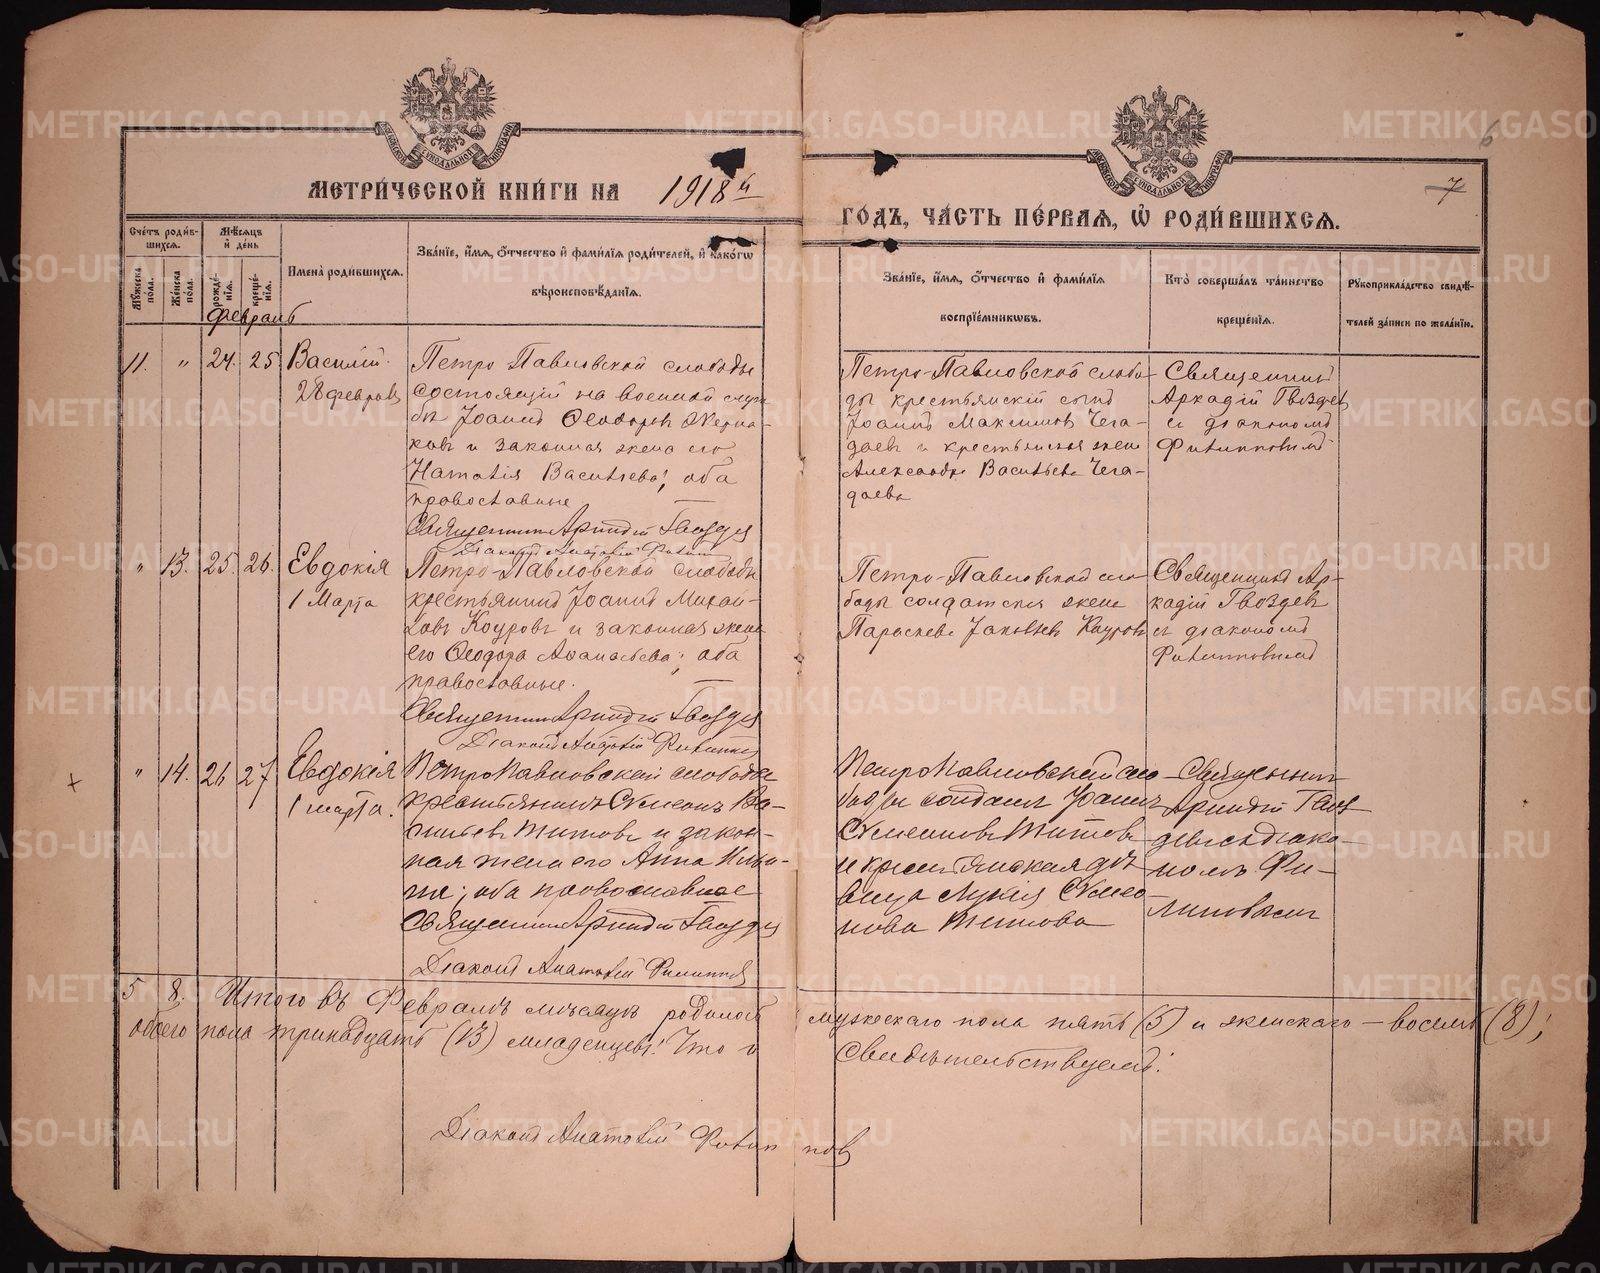 МЕТРИЧЕСКОЙ КНИГИ НА 1918 й
ГОДЪ, ЧАСТЬ ПЕРВАЯ, Ѡ РОДИВШИХСЯ.
6
7
Счетъ родив-
шихся.
Мужеска пола.
Женска пола.
Мѣсяцъ
и день
рожде-
нія.
креще-
нія.
Имена родившихся.
Званіе, имя, отчество и фамилія родителей, и какогѡ
вѣроисповѣданія.
Званіе, имя, отчество и фамилія
воспріемникѡвъ.
Кто совершалъ таинство
крещенія.
Рукоприкладство свидѣ-
телей записи по желанію.
Февраль
11. " 24. 25 Василій
28 февраля
Петро-Павловской слободы
состоящій на военной служ-
бѣ Іоаннъ Ѳеодоровъ
и законная жена его
Наталія Васильева; оба
православные
Священникъ Аркадій Гвоздев
Діаконъ Анатолій Филиппов
Петро-Павловской слобо-
ды крестьянскій сынъ
Іоаннъ Максимовъ Чега-
даевъ и крестьянская жена
Александра Васильева Чега-
даева
Священникъ
Аркадій Гвоздев
съ діакономъ
Филипповымъ
" 13. 25. 26. Евдокія
1 Марта
Петро-Павловской слободы
крестьянинъ Іоаннъ Михай-
ловъ Кауровъ и законная жена
его Ѳеодора Аѳанасьева; оба
православные.
Священникъ Аркадій Гвоздев
Діаконъ Анатолій Филиппов
Петро-Павловской сло-
боды солдатская жена
Параскева Іаковлев Кауров
Священникъ Ар-
кадій Гвоздевъ
съ діакономъ
Филипповымъ
" 14. 26 27 Евдокія
1 марта.
Петро Павловской слободы
крестьянинъ Сѵмеонъ Ва-
сильевъ Титовъ и закон-
ная жена его Анна Ильи-
на; оба православные
Священникъ Аркадій Гвоздев
Діаконъ Анатолій Филиппов
Петро Павловской сло-
боды солдатъ Іоаннъ
Сѵмеоновъ Титовъ
и крестьянская дѣ-
вица Лукія Сѵмео-
нова Титова
Священник
Аркадій Гвоз-
девъ съ діако-
номъ Фи-
липовымъ
5 8. Итого въ Февралѣ мѣсяцѣ родилось мужескаго пола пять (5) и женскаго – восемь (8);
обоего пола тринадцать (13) младенцевъ. Что и свидѣтельствуемъ:
Діаконъ Анатолій Филиппов
METRIKI.GASO-URAL.RU